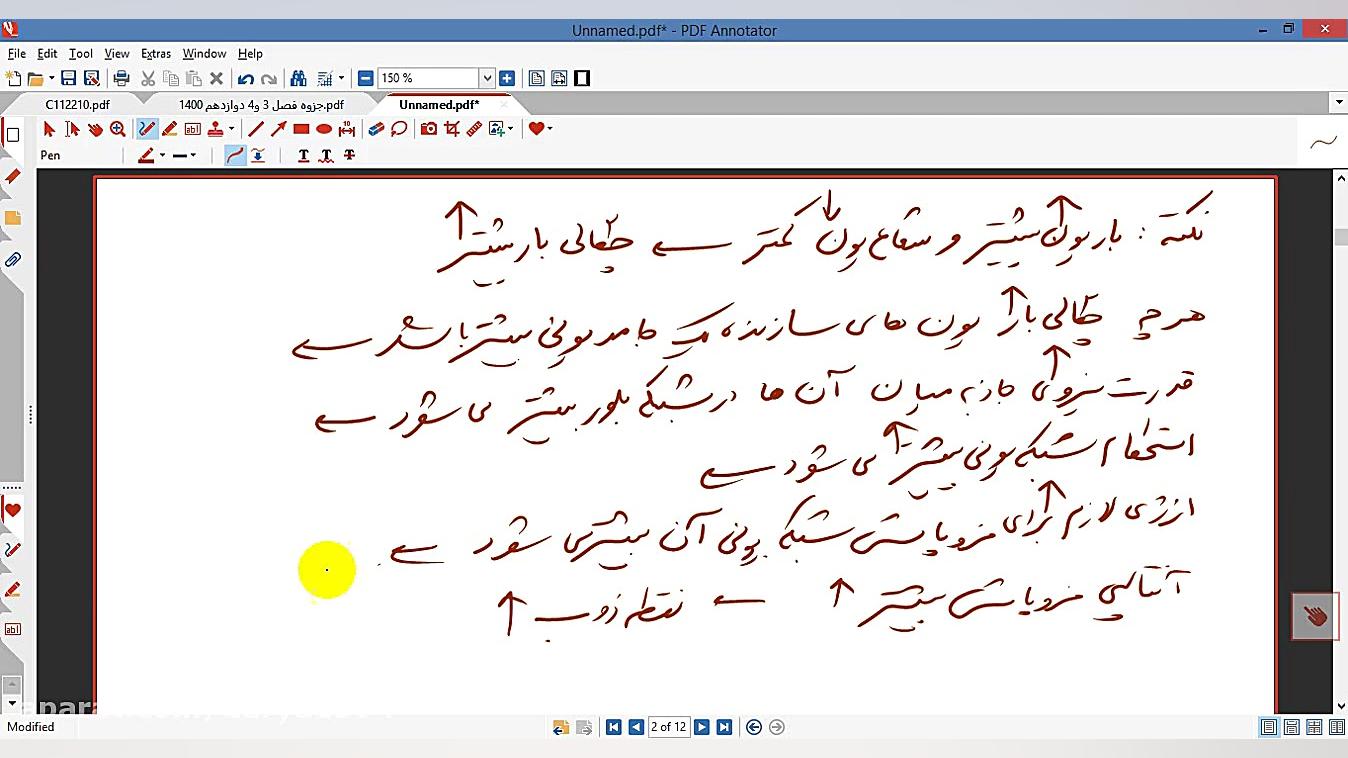 Unnamed.pdf* - PDF Annotator
File Edit Tool View Extras Window Help
150 %
C112210.pdf
جزوه فصل 3 و4 دوازدهم 1400.pdf
Unnamed.pdf*
Pen
نکته : بار یون بیشتر و شعاع یون کمتر ← چگالی بار بیشتر ↑
هر چه چگالی بار یون های سازنده یک جامد یونی بیشتر باشد ←
قدرت نیروی جاذبه میان آن ها در شبکه بلور بیشتر می شود ←
استحکام شبکه یونی بیشتر می شود ←
انرژی لازم برای فروپاشی شبکه یونی آن بیشتر می شود ←
آنتالپی فروپاشی بیشتر ↑ ← نقطه ذوب ↑
Modified
2 of 12